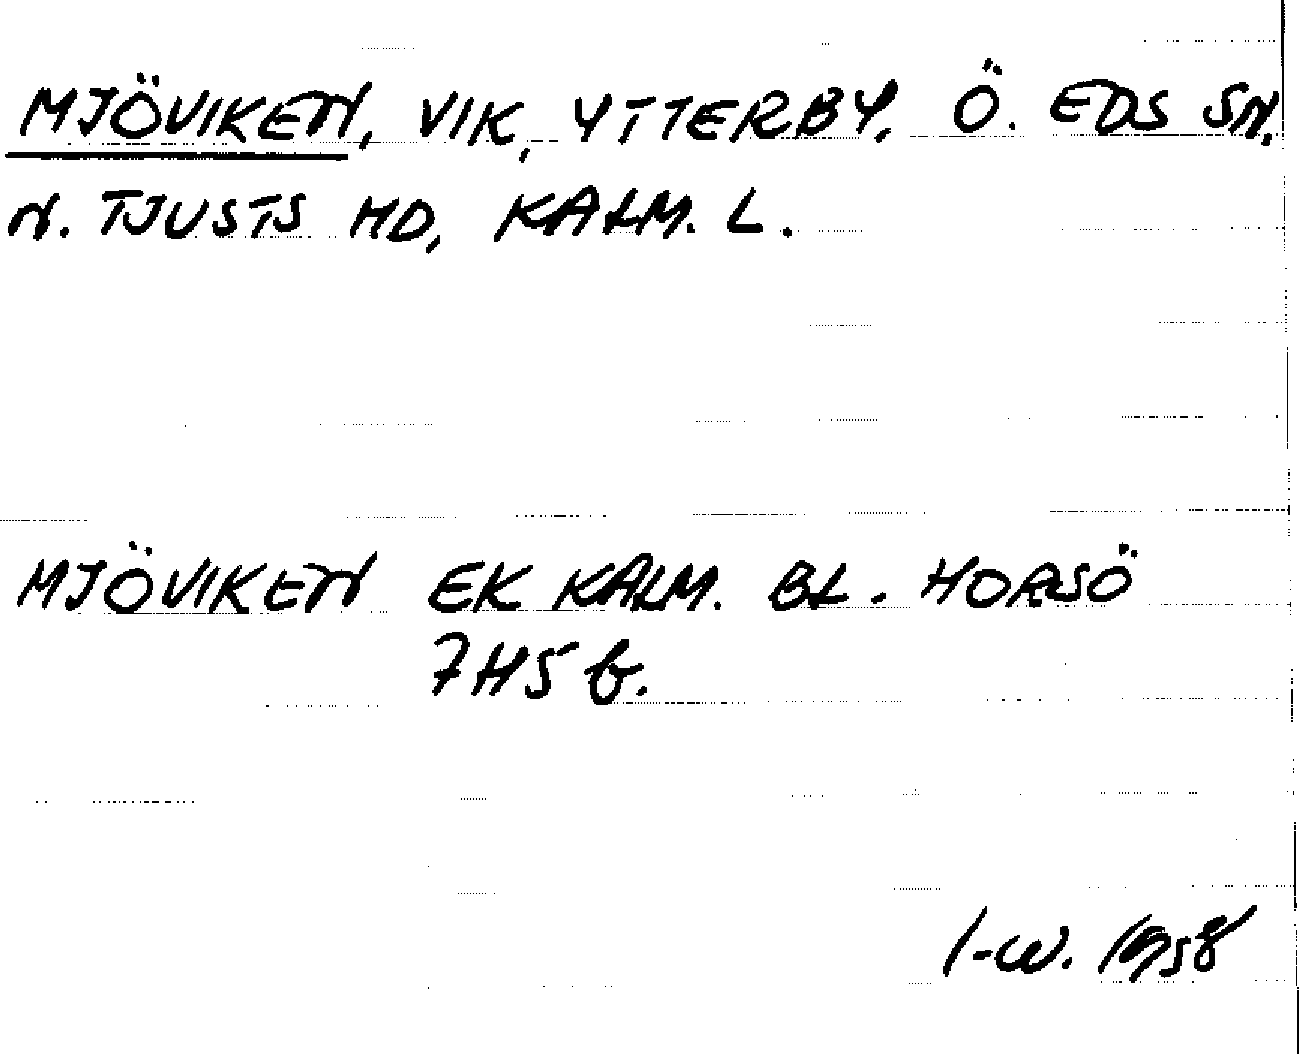 MJÖVIKEN, VIK, YTTERBY, Ö. EDS SN,
N. TJUSTS HD, KALM. L.
MJÖVIKEN EK KALM. BL. HORSÖ
7H5 b.
I-W. 1958